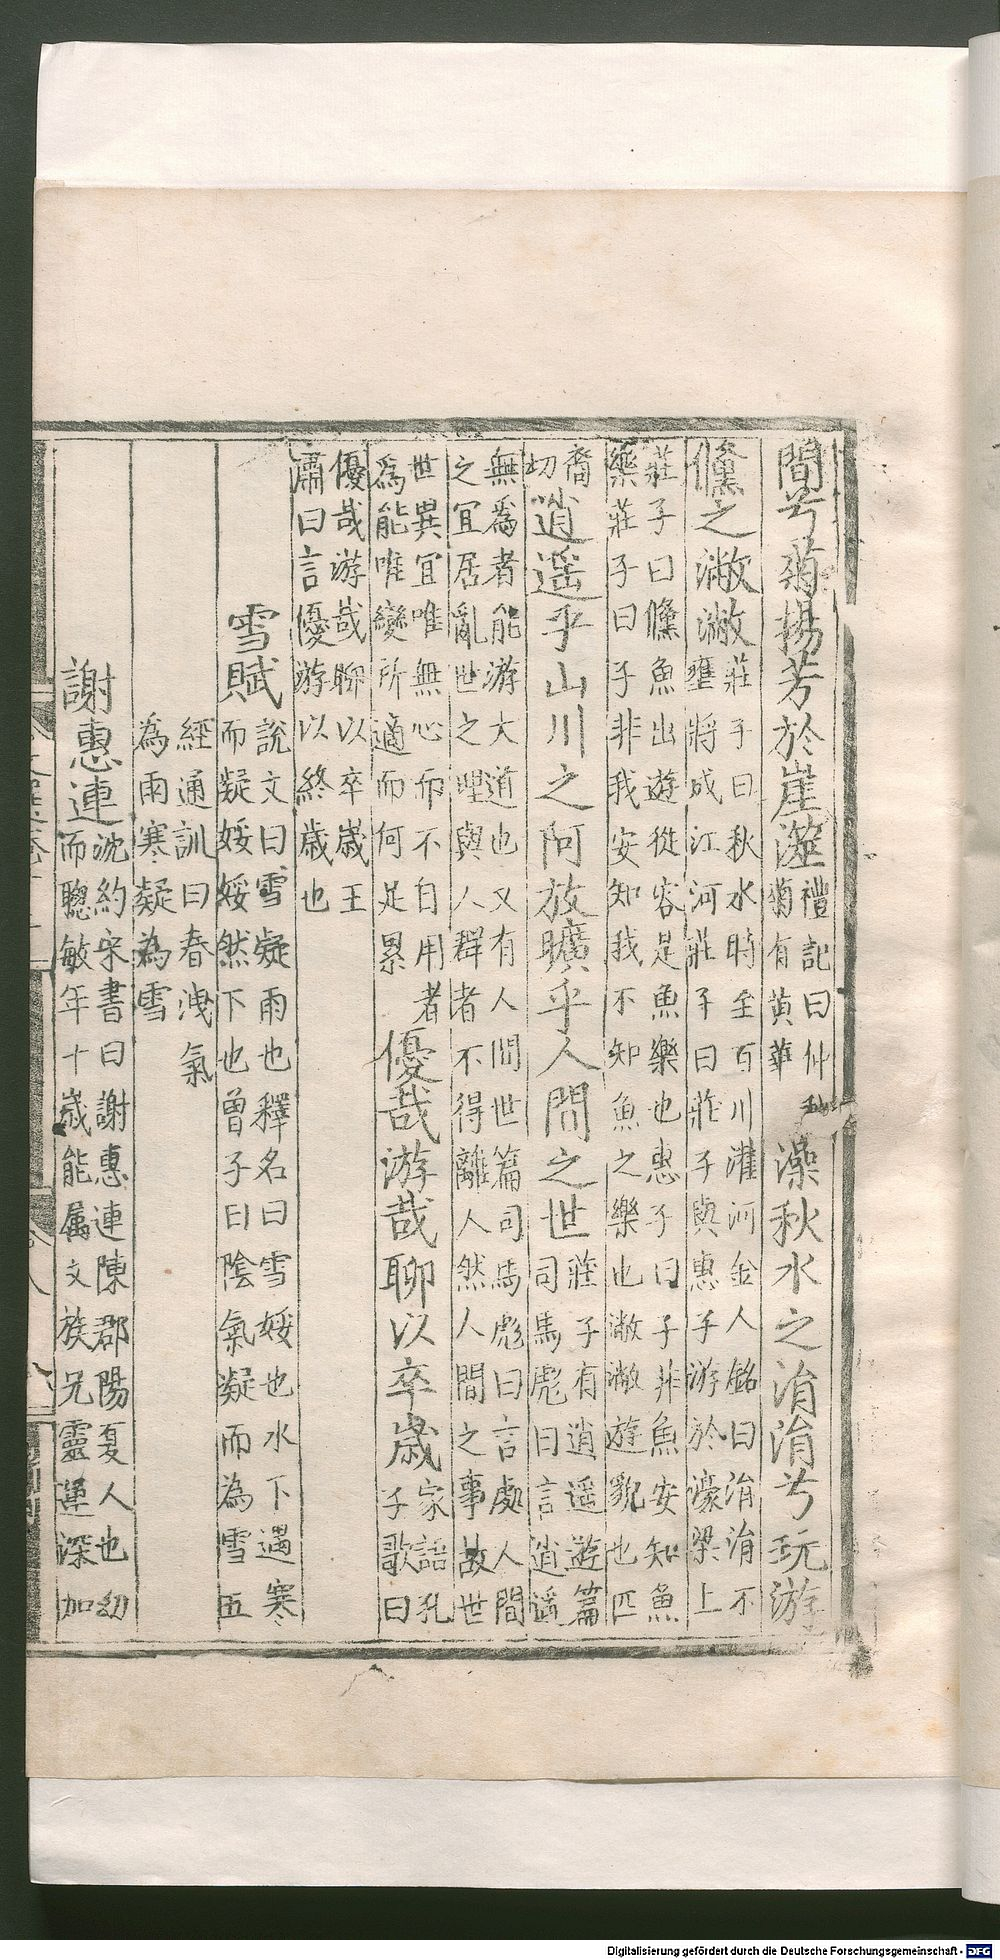 間兮菊揚芳於崖澨禮記曰仲秋菊有黃華澡秋水之涓涓兮玩游
儵之潎潎莊子曰秋水時至百川灌河金人銘曰涓涓不壅將成江河莊子曰莊子與惠子游於濠梁上
莊子曰儵魚出遊從容是魚樂也惠子曰子非魚安知魚樂莊子曰子非我安知我不知魚之樂也潎潎遊皃也匹
裔切逍遥乎山川之阿放曠乎人間之世莊子有逍遥遊篇司馬彪曰言逍遥
無爲者能游大道也又有人間世篇司馬彪曰言處人間之宜居亂世之理與人群者不得離人然人間之事故世
世異宜唯無心而不自用者爲能唯變所適而何足累優哉游哉聊以卒歲家語孔子歌曰
優哉游哉聊以卒歲王肅曰言優游以終歲也
雪賦說文曰雪凝雨也釋名曰雪綏也水下遇寒而凝綏綏然下也曾子曰陰氣凝而為雪五
經通訓曰春洩氣為雨寒凝為雪
謝惠連沈約宋書曰謝惠連陳郡陽夏人也幼而聰敏年十歲能属文族兄靈運深加
Digitalisierung gefördert durch die Deutsche Forschungsgemeinschaft - DFG